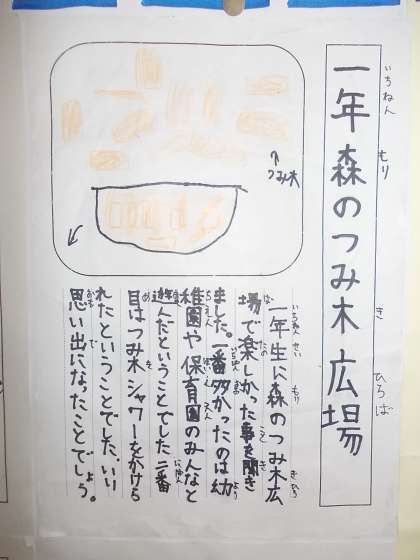 いちねん もり き ひろば
一年 森のつみ木広場
↑
つみ木
一年生に森のつみ木広
場で楽しかった事を聞き
ました。一番多かったのは幼
稚園や保育園のみんなと
遊んだということでした二番
目はつみ木シャワーをかけら
れたということでした。いい
思い出になったことでしょう。